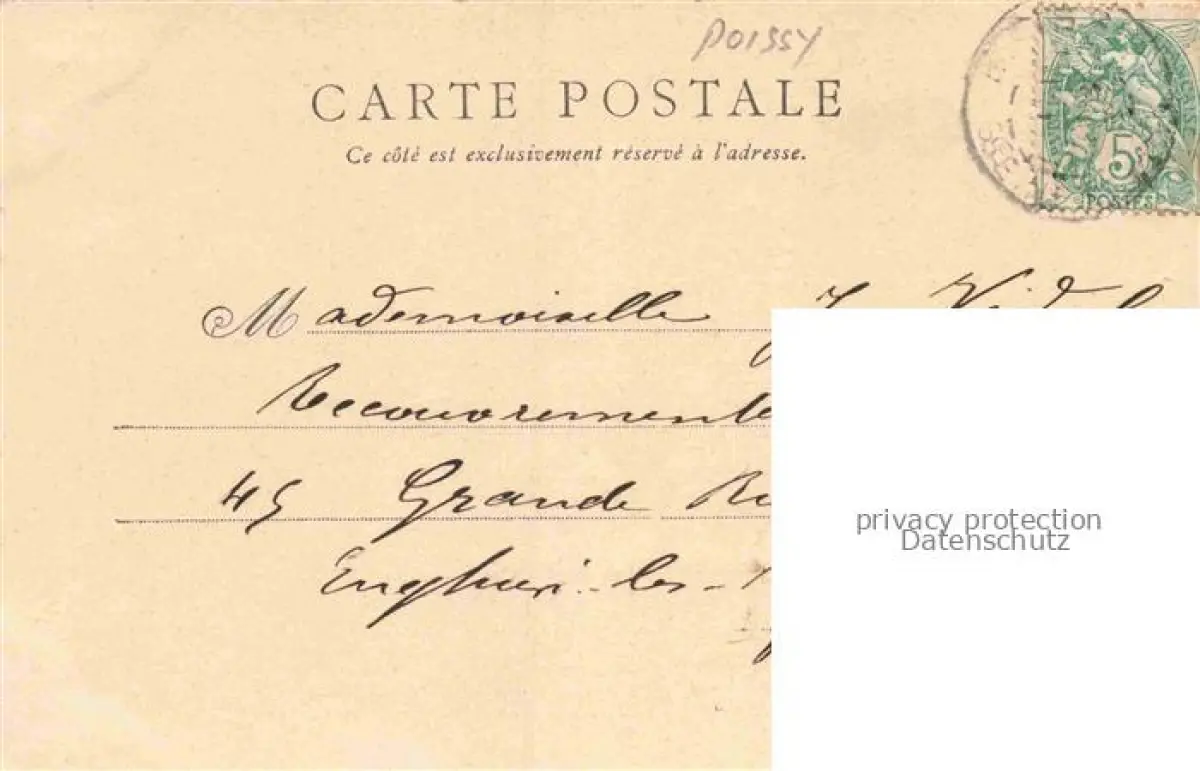 POISSY
CARTE POSTALE
Ce côté est exclusivement réservé à l'adresse.
5
POSTES
Mademoiselle
Recouvrements
45 Grande
Enghien-les-
privacy protection
Datenschutz